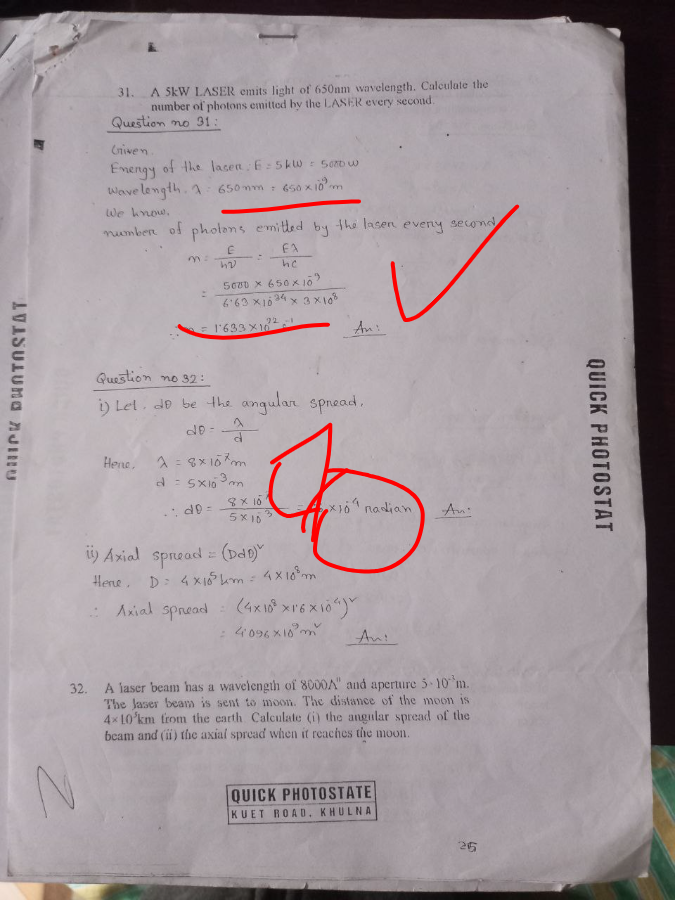 31. A 5kW LASER emits light of 650nm wavelength. Calculate the
number of photons emitted by the LASER every second.
Question no 31:
Given.
Energy of the laser, E = 5kW = 5000 W
Wavelength, λ = 650 nm = 650×10⁻⁹ m
We know,
number of photons emitted by the laser every second
n = E/hν = Eλ/hc
= 5000 × 650×10⁻⁹ / 6.63×10⁻³⁴ × 3×10⁸
= 1.633×10²² s⁻¹ Ans:
Question no 32:
i) Let, dθ be the angular spread,
dθ = λ/d
Here, λ = 8×10⁻⁷ m
d = 5×10⁻³ m
∴ dθ = 8×10 / 5×10⁻³ = ×10⁻⁴ radian Ans:
ii) Axial spread = (Ddθ)²
Here, D = 4×10⁵ km = 4×10⁸ m
∴ Axial spread = (4×10⁸ × 1.6×10⁻⁴)²
= 4.096×10⁹ m² Ans:
32. A laser beam has a wavelength of 8000A° and aperture 5×10⁻³m.
The laser beam is sent to moon. The distance of the moon is
4×10⁵km from the earth. Calculate (i) the angular spread of the
beam and (ii) the axial spread when it reaches the moon.
QUICK PHOTOSTATE
KUET ROAD, KHULNA
26
QUICK PHOTOSTAT
QUICK PHOTOSTAT
N